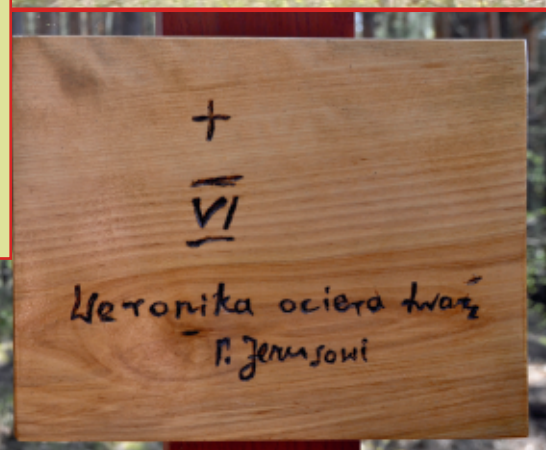 +
VI
Weronika ociera twarz
P. Jezusowi